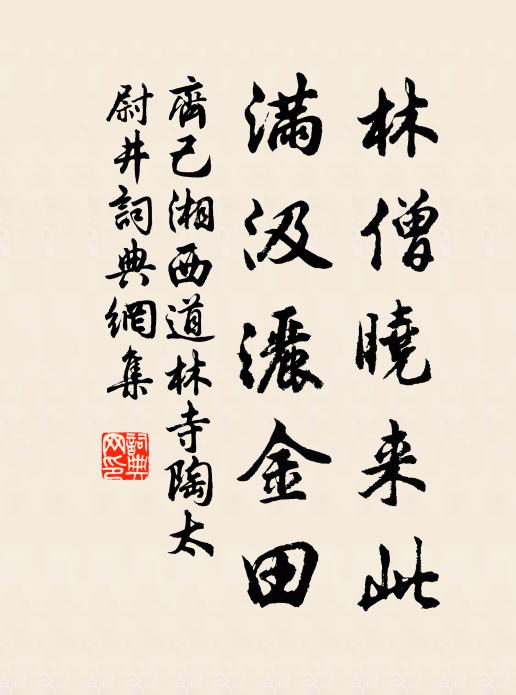 林僧曉来此
滿汲灑金田
齊己湘西道林寺陶太
尉井詞典網集
詞典
网印